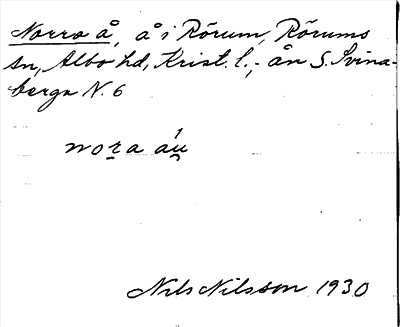 Norra å, å i Rörum, Rörums
sn, Albo hd, Krist. l., - ån S. Svina-
berga N. 6
nora áu
Nils Nilsson 1930